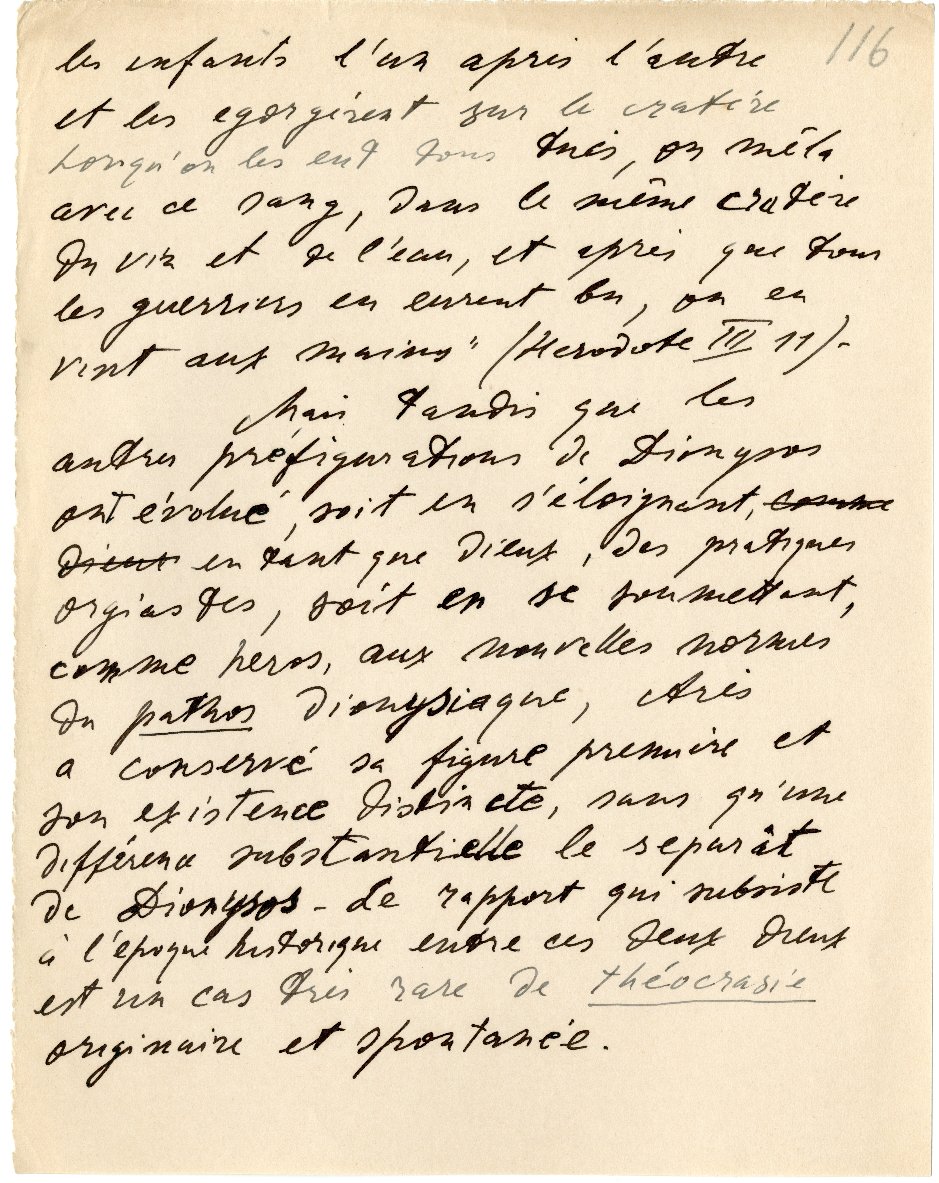 116
les enfants l'un après l'autre
et les egorgèrent sur le cratère
Lorsqu'on les eut tous tués, on mêla
avec ce sang, dans le même cratère
du vin et de l'eau, et après que tous
les guerriers en eurent bu, on en
vint aux mains" (Herodote III 11).
Mais tandis que les
autres préfigurations de Dionysos
ont évolué, soit en s'éloignant, comme
dieux en tant que dieux, des pratiques
orgiastes, soit en se soumettant,
comme heros, aux nouvelles normes
du pathos dionysiaque, Arès
a conservé sa figure première et
son existence distincte, sans qu'une
différence substantielle le separât
de Dionysos. Le rapport qui subsiste
à l'époque historique entre ces deux dieux
est un cas très rare de théocrasie
originaire et spontanée.